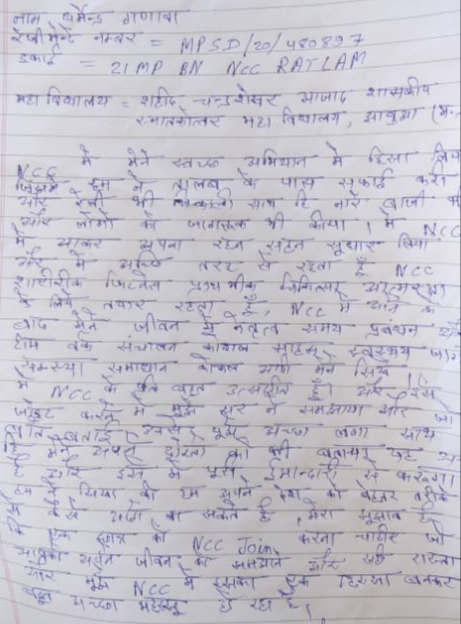 नाम धर्मेन्द्र गणावा
रेजीमेन्ट नम्बर = MPSD/20/480897
इकाई = 21 MP BN NCC RATLAM
महा विद्यालय = शहीद चन्द्रशेखर आजाद शासकीय
स्नातकोत्तर महा विद्यालय, झाबुआ (म.
NCC में मेने स्वच्छ अभियान में हिस्सा लिया
जिसमे हम ने तालाब के पास सफाई करी
और रेली भी निकाली साथ हि नारे बाजी भी
और लोगो को जागरूक भी किया। में NCC
में आकर अपना रहन सहन सुधार लिया
और में अच्छि तरह से रहता हूँ NCC
शारीरीक फिटनेस प्राथमीक चिकित्सा आत्मरक्षा
के लिये तयार रहता हूँ, NCC में आने के
बाद मेने जीवन में नेतृत्व समय प्रबंधन और
टीम वर्क संचालन
समस्या समाधान कौशल भी मेने सिखा
में NCC के प्रति बहुत उत्साहीत हूँ। और इस
करने में मुझे सर ने समझाया और जो
बात बताई मुझे अच्छा लगा साथ
हि मेने अपने दोस्तो को भी बताया
है इसे में पुरी ईमान्दारी से करूंगा।
हम ने सिखा की हम अपने देश को बेहतर तरीके
से केसे बना सकते है, मेरा सुझाव है
कि एक छात्र को NCC Join करना चाहीए जो
आपको अपने जीवन का सम्मान और सही रास्ता
और मुझे NCC में इसका एक हिस्सा बनकर
बहुत अच्छा महसूस हो रहा है,